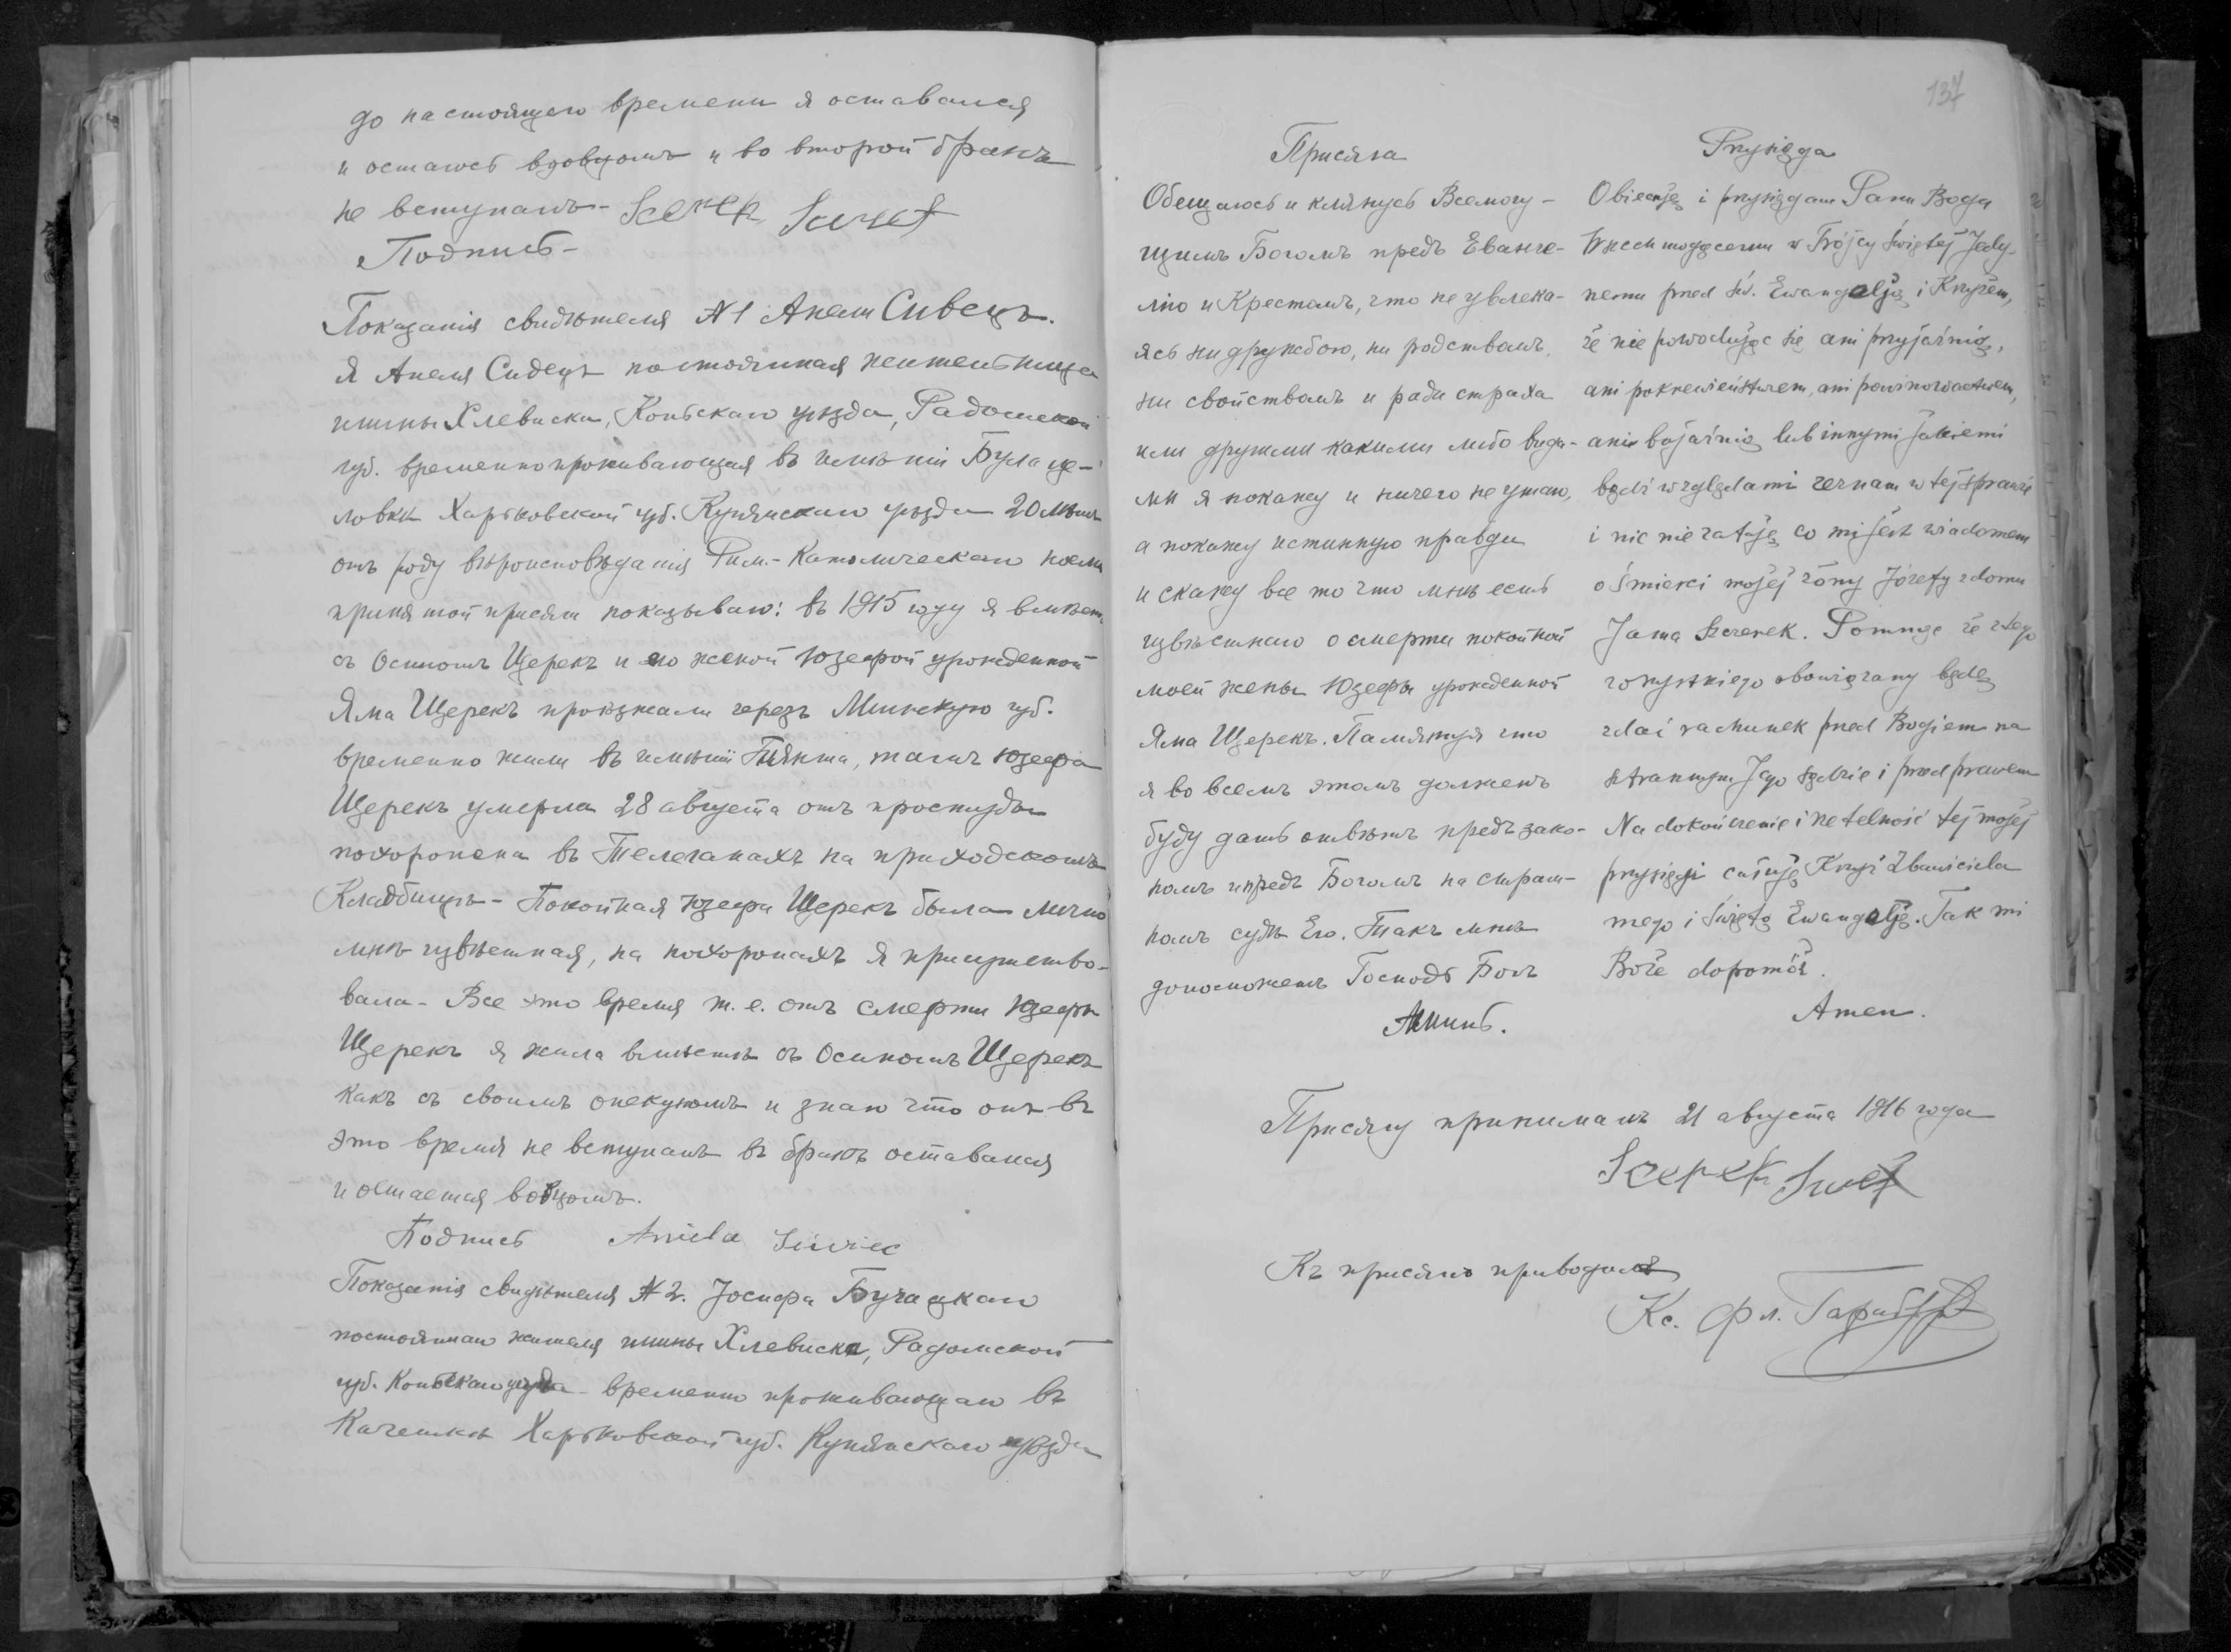 до настоящего времени я оставался
и остаюсь вдовцомъ и во второй бракъ
не вступалъ-
Подпись-
Показанія свидѣтеля №1 Анели Сивецъ.
Я Анеля Сивецъ постоянная жительница
гмины Хлевиски, Коньскаго уѣзда, Радомской
губ. временно проживающая въ имѣніи
Харьковской губ. Купянскаго уѣзда 20 лѣтъ
отъ роду вѣроисповѣданія Рим.-Католическаго послѣ
принятой присяги показываю: въ 1915 году я вмѣстѣ
съ Осипомъ Щерекъ и его женой Юзефой урожденной
Яма Щерекъ проѣзжали черезъ Минскую губ.
временно жили въ имѣніи тамъ Юзефа
Щерекъ умерла 28 августа отъ простуды
похоронена въ Телеханахъ на приходскомъ
Кладбищѣ - Покойная Юзефа Щерекъ была лично
мнѣ извѣстная, на похоронахъ я присутство-
вала - Все это время т. е. отъ смерти Юзефы
Щерекъ я жила вмѣстѣ съ Осипомъ Щерекъ
какъ съ своимъ опекуномъ и знаю что онъ въ
это время не вступалъ въ бракъ оставался
и остается вдовцомъ.
Подпись Aniela Siwiec
Показанія свидѣтеля №2. Іосифа
постояннаго жителя гмины Хлевиска, Радомской
губ. Коньскаго уѣзда - временно проживающаго въ
Харьковской губ. Купянскаго уѣзда
137
Присяга
Обещаюсь и клянусь Всемогу-
щимъ Богомъ предъ Еванге-
ліею и Крестомъ, что не увлека-
ясь ни дружбою, ни родствомъ,
ни свойствомъ и ради страха
или другими какими либо вида-
ми я покажу и ничего не утаю,
а покажу истинную правду
и скажу все то что мнѣ есть
извѣстнаго о смерти покойной
моей жены Юзефы урожденной
Яма Щерекъ. Памятуя что
я во всемъ этомъ долженъ
буду дать отвѣтъ предъ зако-
номъ и предъ Богомъ на страш-
номъ судѣ Его. Такъ мнѣ
допоможетъ Господь Богъ
Аминь.
Przysięga
Obiecuję i przysięgam Panu Bogu
Wszechmogącemu w Trójcy Świętej Jedy-
nemu przed Św. Ewangelją i Krzyżem,
że nie powodując się ani przyjaźnią,
ani pokrewieństwem, ani powinowactwem,
ani bojaźnią lub innymi jakiemi
bądź względami zeznam w tej sprawie
i nic nie zataję co mi jest wiadomem
o śmierci mojej żony Józefy z domu
Jama Szczerek. Pomnąc że z tego
wszystkiego obowiązany będę
zdać rachunek przed Bogiem na
strasznym Jego sądzie i przed prawem
Na dokończenie i rzetelność tej mojej
przysięgi całuję Krzyż Zbawiciela
mego i Świętą Ewangelję. Tak mi
Boże dopomóż.
Amen.
Присягу принималъ 21 августа 1916 года
Къ присягѣ приводилъ
Кс. Фл.